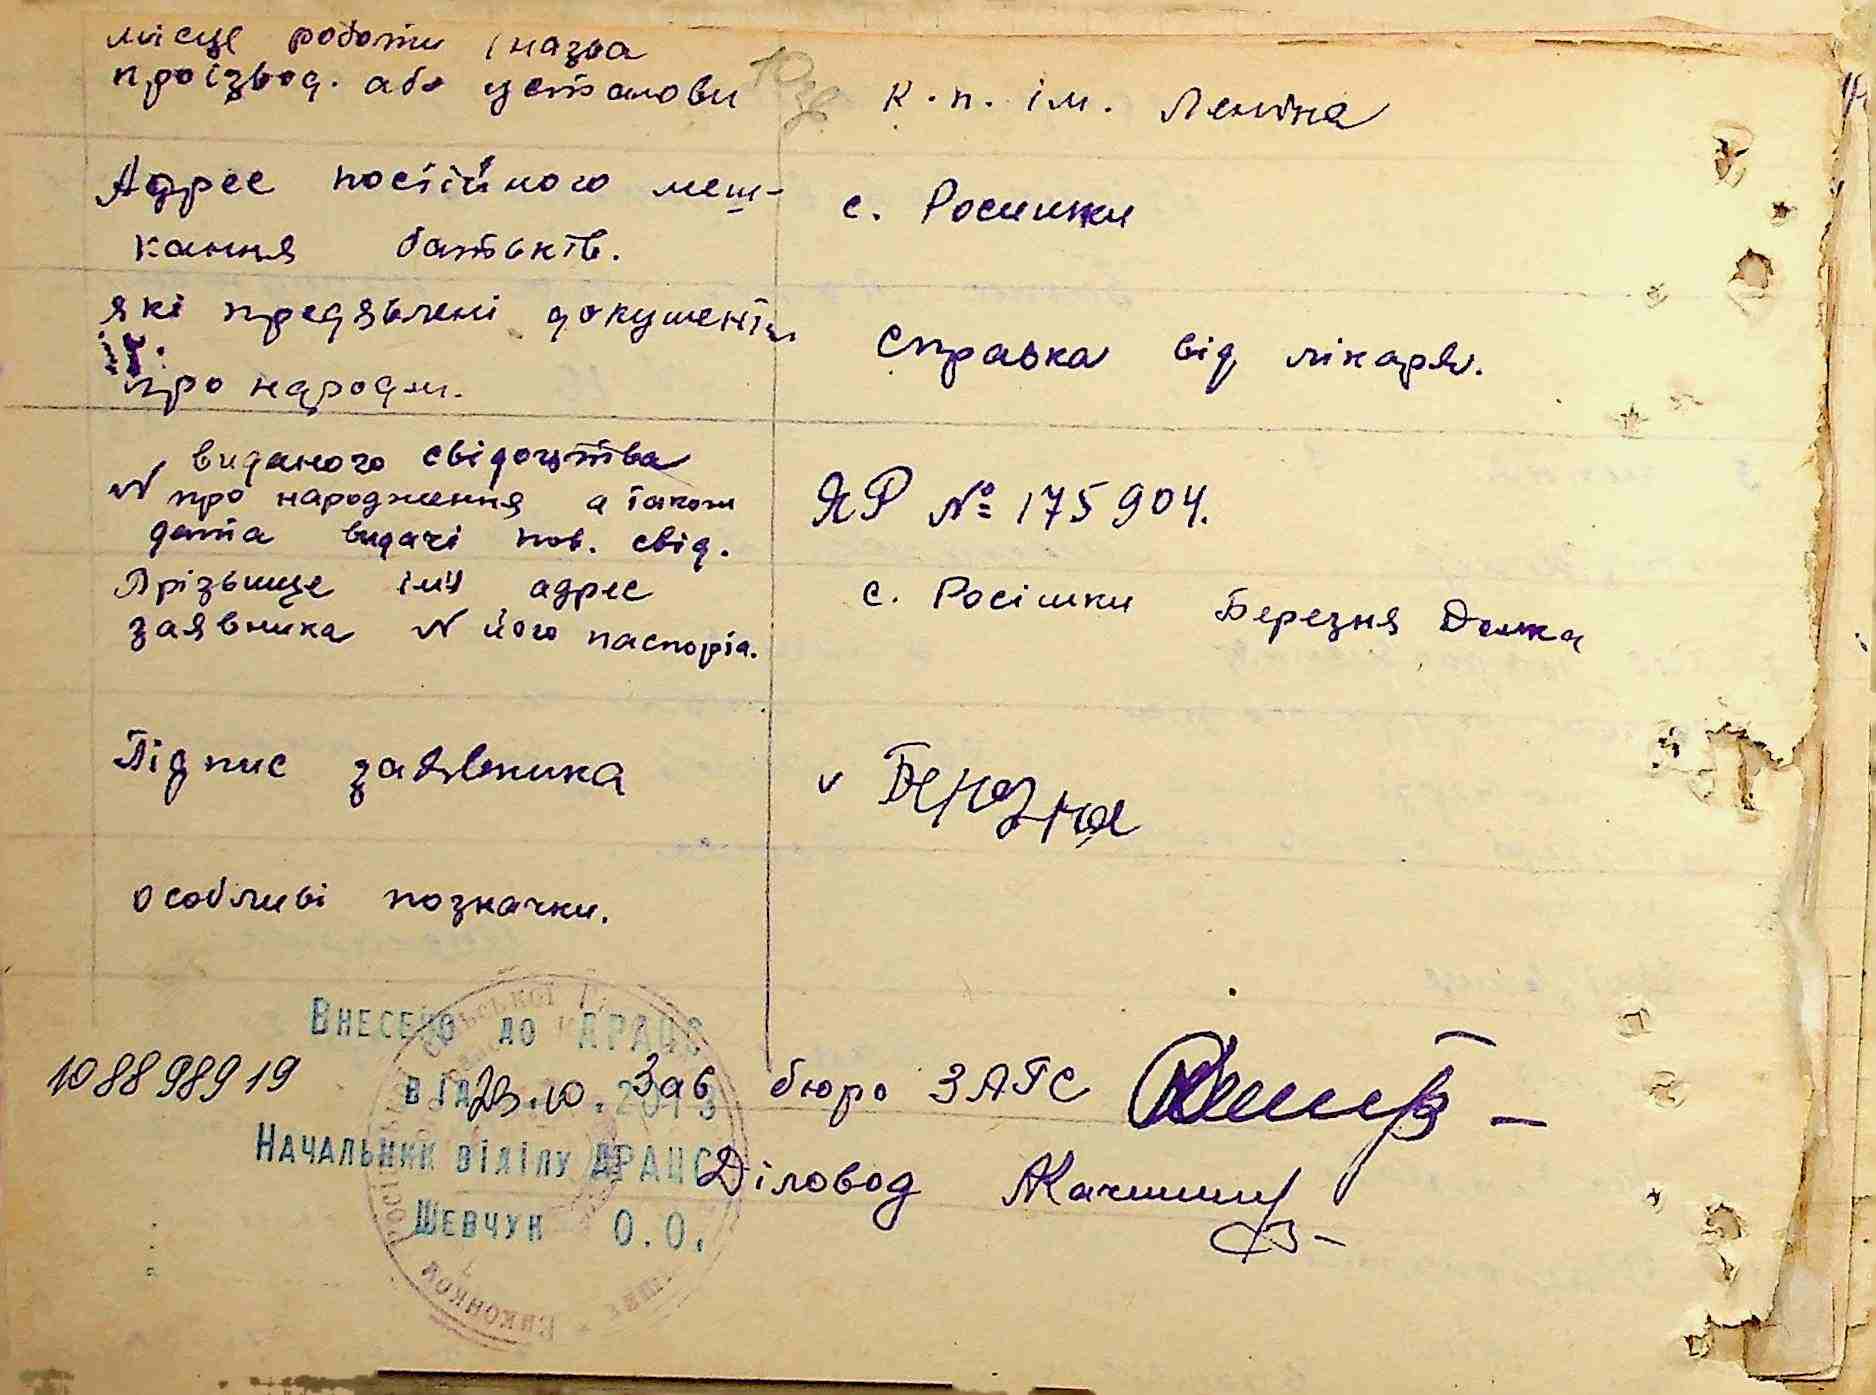 місце роботи (назва
проізвод. або установи
к.п. ім. Леніна
Адрес постійного меш-
кання батьків.
с. Росишки
які предявлені документи
про народж.
справка від лікаря.
виданого свідоцтва
N про народження а також
дата видачі пов. свід.
ЯР № 175904.
Прізвище імя адрес
заявника N його паспорта.
с. Росішки Березня Домка
Підпис заявника
v Березня
особливі позначки.
Внесено до ДРАЦС
108898919
23.10.
Зав бюро ЗАГС
Начальник відділу ДРАЦС
Діловод
Шевчук О.О.
Виконком